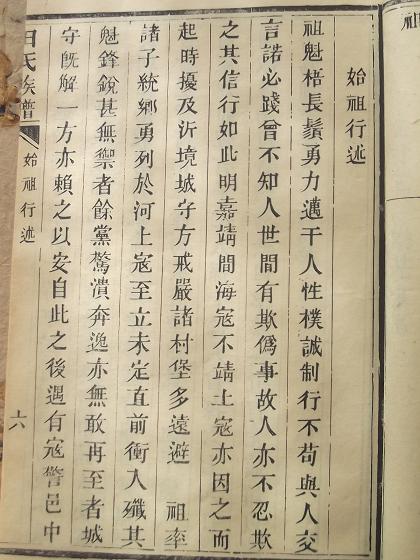 始祖行述
祖魁梧長鬚勇力邁千人性樸誠制行不苟與人交
言諾必踐曾不知人世間有欺僞事故人亦不忍欺
之其信行如此明嘉靖間海寇不靖土寇亦因之而
起時擾及沂境城守方戒嚴諸村堡多遠避 祖率
諸子統鄉勇列於河上寇至立未定直前衝入殲其
魁鋒銳甚無禦者餘黨驚潰奔逸亦無敢再至者城
守既解一方亦賴之以安自此之後遇有寇警邑中
田氏族譜 始祖行述 六
祖